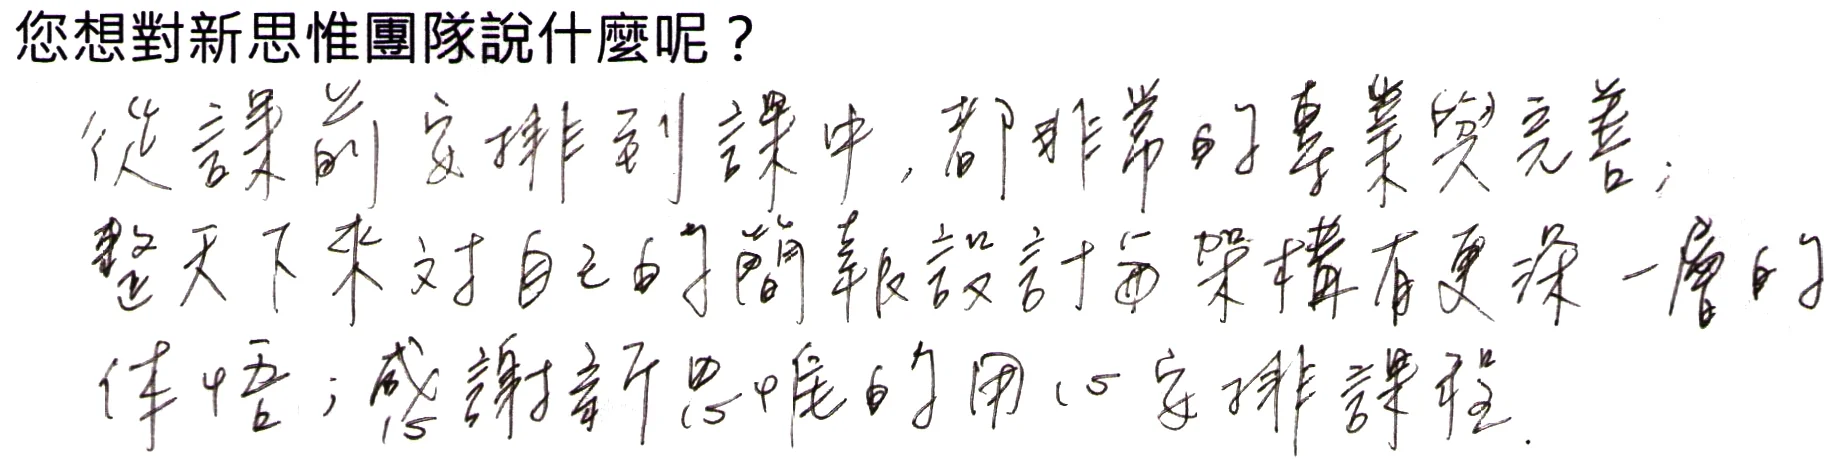 您想對新思惟團隊說什麼呢？
從課前安排到課中,都非常的專業與完善;
整天下來对自己的簡報設計与架構有更深一層的
体悟;感謝新思惟的用心安排課程.